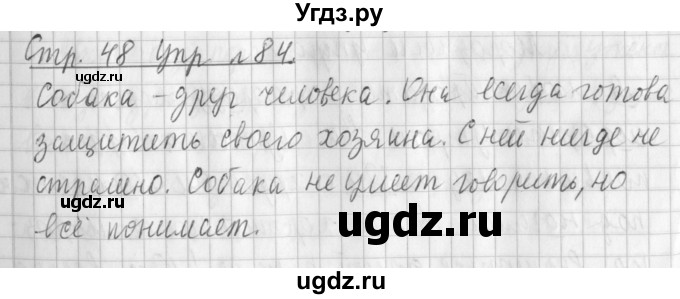 Угдз.ру
Стр. 48 Упр №84.
gdz.ru
gdz.ru
Собака - друг человека. Она всегда готова
защитить своего хозяина. С ней нигде не
страшно. Собака не умеет говорить, но
gdz.ru
угdz.ru
всё понимает.
gdz.ru
угdz.ru